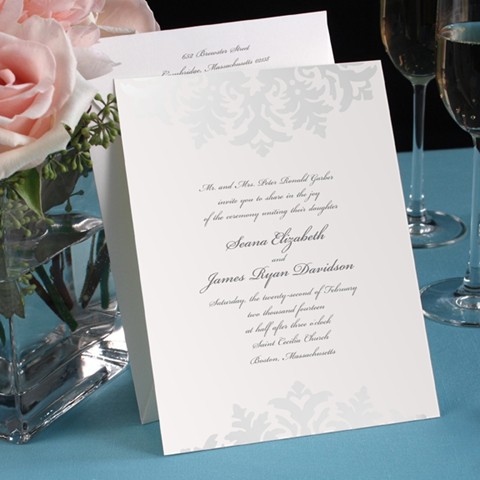 652 Brewster Street
Cambridge, Massachusetts
Mr. and Mrs. Peter Ronald Garber
invite you to share in the joy
of the ceremony uniting their daughter
Seana Elizabeth
and
James Ryan Davidson
Saturday, the twenty-second of February
two thousand fourteen
at half after three o'clock
Saint Cecilia Church
Boston, Massachusetts